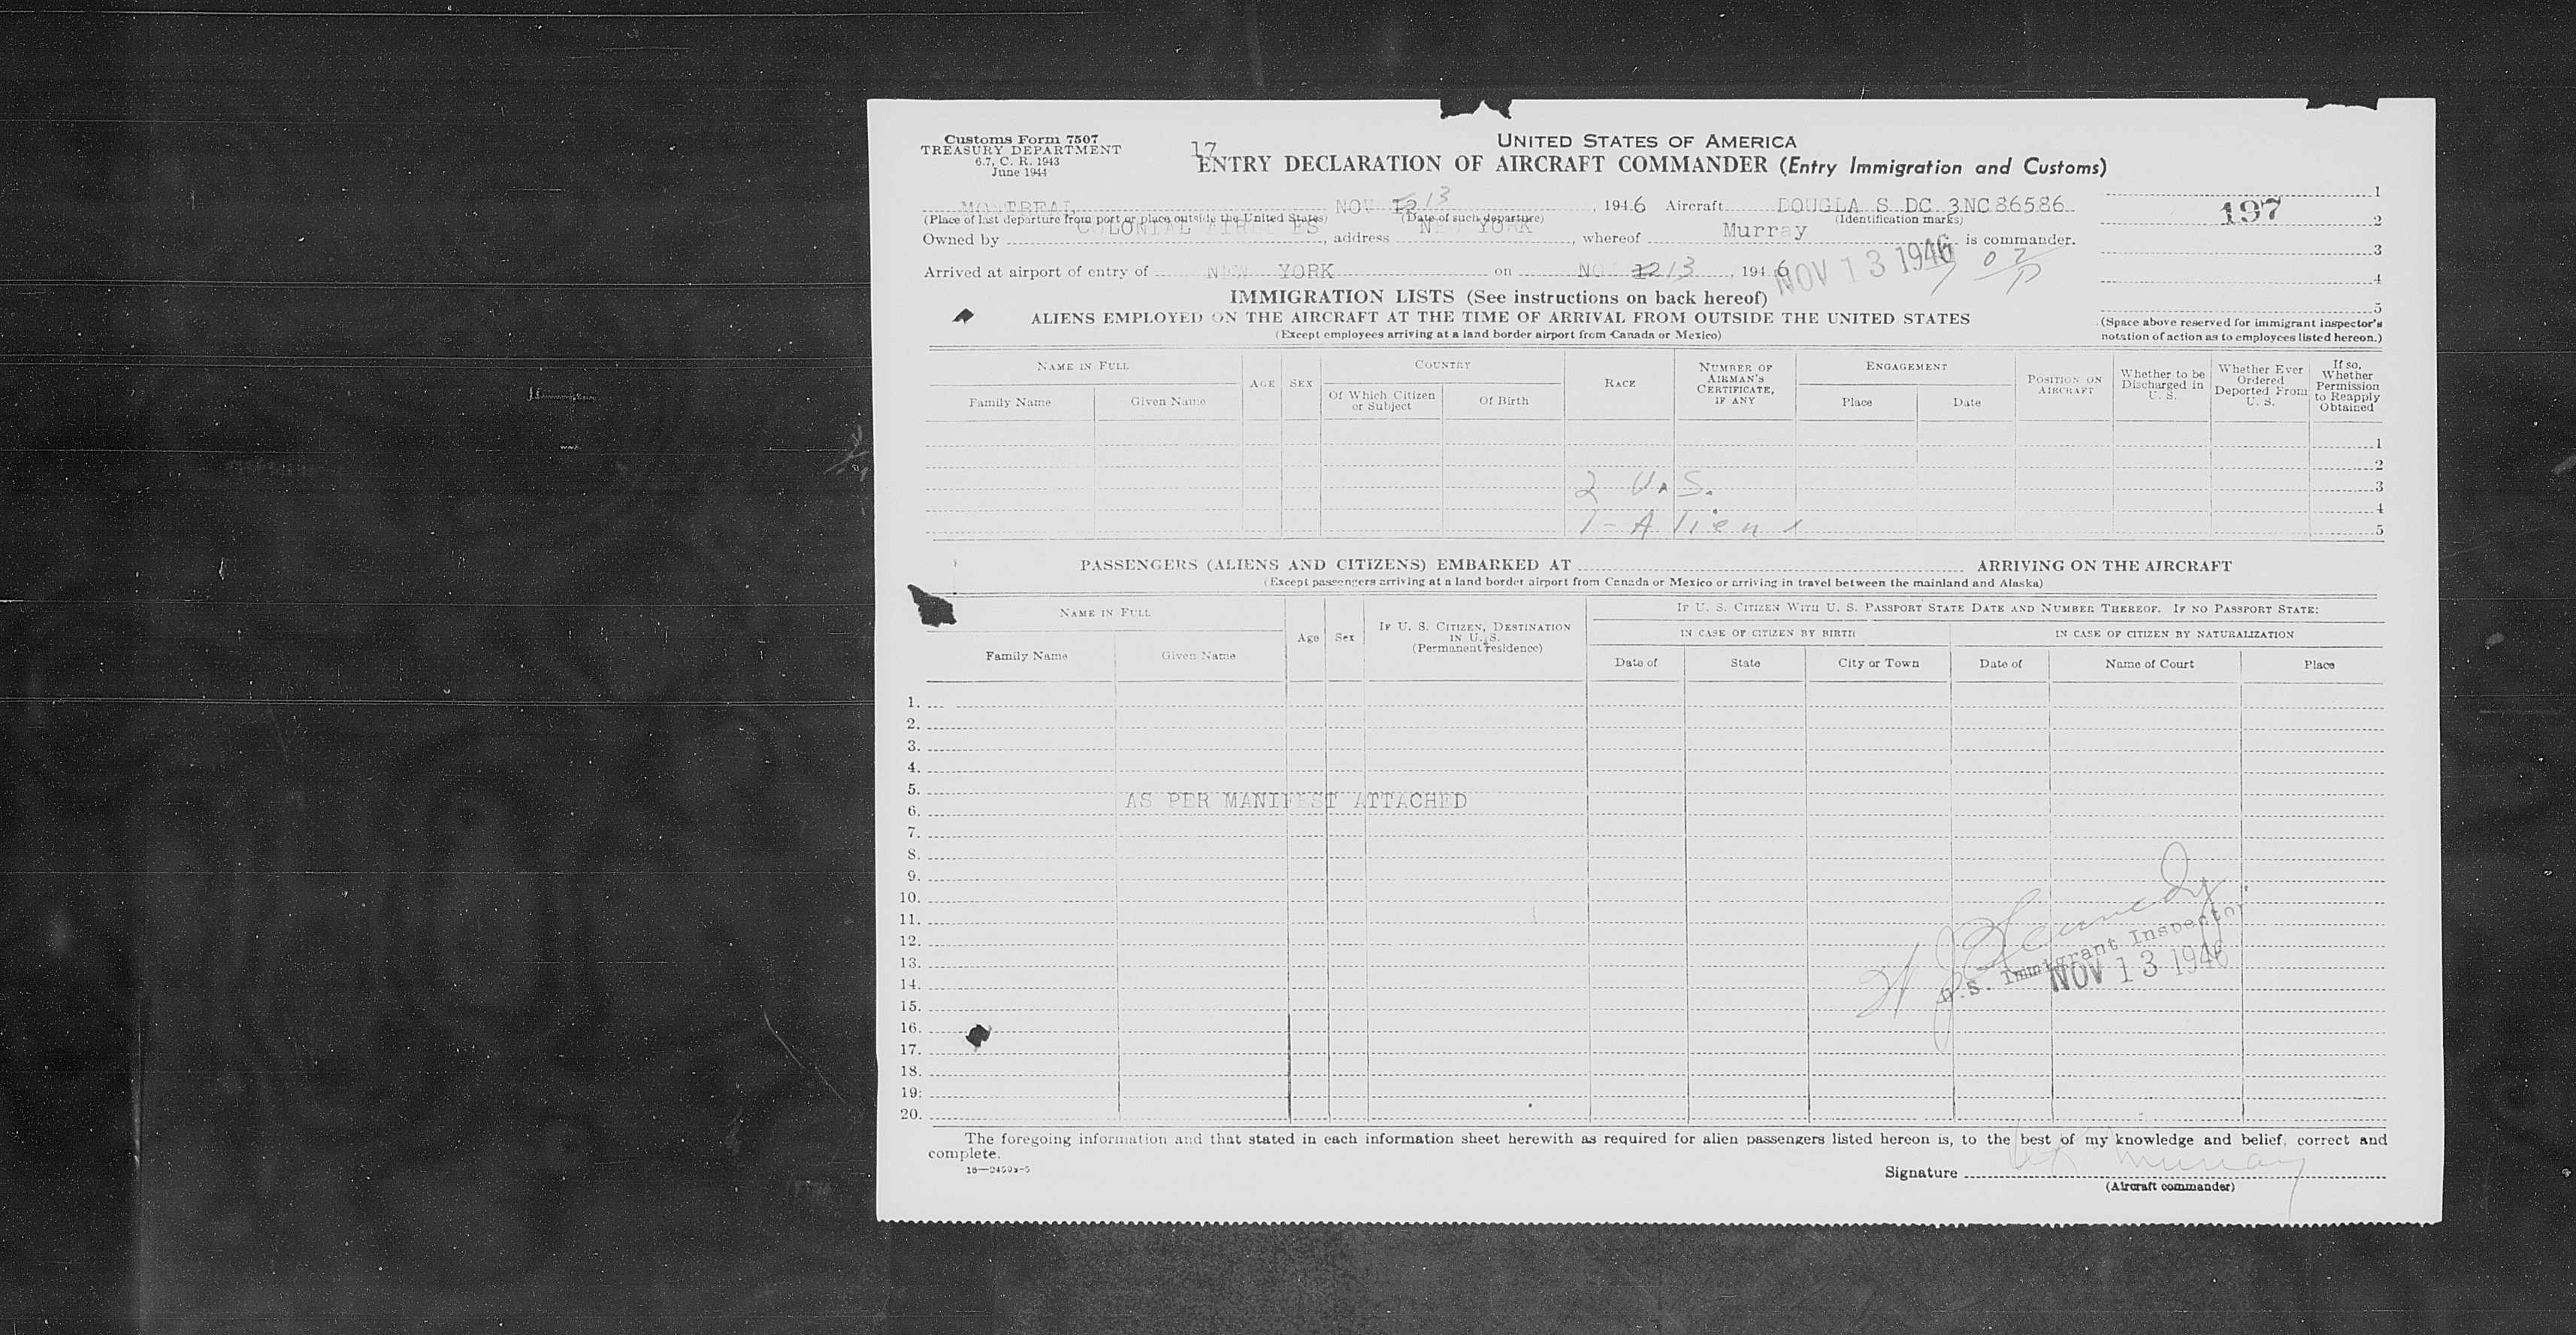 Customs Form 7507
TREASURY DEPARTMENT
6.7, C. R. 1943
June 1944
17
UNITED STATES OF AMERICA
ENTRY DECLARATION OF AIRCRAFT COMMANDER (Entry Immigration and Customs)
MONTREAL NOV 12 13, 1946 Aircraft DOUGLA S DC 3NC86586
(Place of last departure from port or place outside the United States) (Date of such departure) (Identification marks)
Owned by COLONIAL AIRLINES, address NEW YORK, whereof Murray is commander.
Arrived at airport of entry of NEW YORK on NOV 12 13, 1946
NOV 13 1946
197
1
2
3
4
5
(Space above reserved for immigrant inspector's
notation of action as to employees listed hereon.)
IMMIGRATION LISTS (See instructions on back hereof)
ALIENS EMPLOYED ON THE AIRCRAFT AT THE TIME OF ARRIVAL FROM OUTSIDE THE UNITED STATES
(Except employees arriving at a land border airport from Canada or Mexico)
NAME IN FULL
Family Name
Given Name
AGE
SEX
COUNTRY
Of Which Citizen
or Subject
Of Birth
RACE
NUMBER OF
AIRMAN'S
CERTIFICATE,
IF ANY
ENGAGEMENT
Place
Date
POSITION ON
AIRCRAFT
Whether to be
Discharged in
U. S.
Whether Ever
Ordered
Deported From
U. S.
If so,
Whether
Permission
to Reapply
Obtained
1
2
3
4
5
2 U.S.
1-Alien
PASSENGERS (ALIENS AND CITIZENS) EMBARKED AT ARRIVING ON THE AIRCRAFT
(Except passengers arriving at a land border airport from Canada or Mexico or arriving in travel between the mainland and Alaska)
NAME IN FULL
Family Name
Given Name
Age
Sex
IF U. S. CITIZEN, DESTINATION
IN U. S.
(Permanent residence)
IF U. S. CITIZEN WITH U. S. PASSPORT STATE DATE AND NUMBER THEREOF. IF NO PASSPORT STATE:
IN CASE OF CITIZEN BY BIRTH
IN CASE OF CITIZEN BY NATURALIZATION
Date of
State
City or Town
Date of
Name of Court
Place
1.
2.
3.
4.
5.
AS PER MANIFEST ATTACHED
6.
7.
8.
9.
10.
11.
12.
13.
14.
15.
16.
17.
18.
19.
20.
U.S. Immigrant Inspector
NOV 13 1946
The foregoing information and that stated in each information sheet herewith as required for alien passengers listed hereon is, to the best of my knowledge and belief, correct and
complete.
Signature Murray
(Aircraft commander)